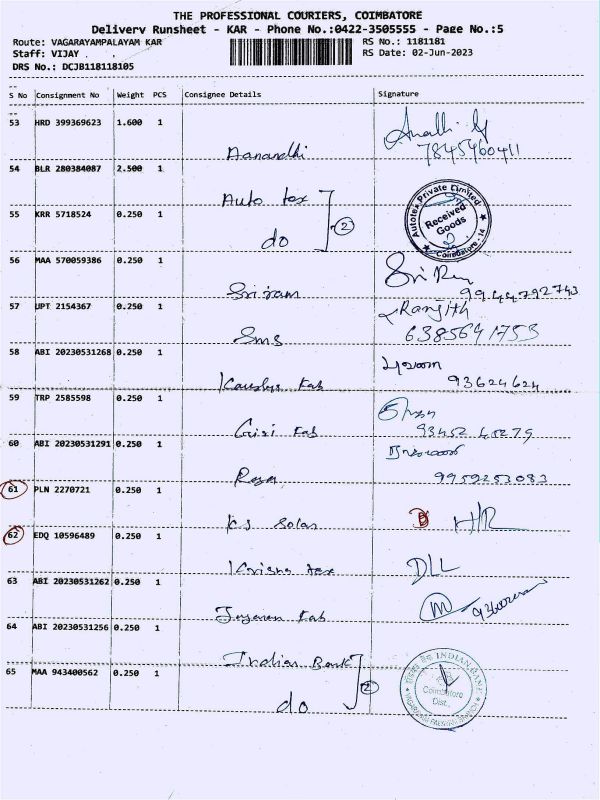 THE PROFESSIONAL COURIERS, COIMBATORE
Delivery Runsheet - KAR - Phone No.:0422-3505555 - Page No.:5
Route: VAGARAYAMPALAYAM KAR
RS No.: 1181181
Staff: VIJAY .
RS Date: 02-Jun-2023
DRS No.: DCJB118118105
S No Consignment No Weight PCS Consignee Details Signature
53 HRD 399369623 1.600 1
Aanandhi 7845460411
54 BLR 280384087 2.500 1
Auto tex
55 KRR 5718524 0.250 1
do 2
Autotex Private Limited
Received Goods
Coimbatore - 14
56 MAA 570059386 0.250 1
Sriram Sri Ram 9944792743
57 UPT 2154367 0.250 1
Sms Ranjith 6385641753
58 ABI 20230531268 0.250 1
Kausalya Fab 93624624
59 TRP 2585598 0.250 1
Giri Fab 93452 45279
60 ABI 20230531291 0.250 1
9959253083
61 PLN 2270721 0.250 1
KS Solar
62 EDQ 10596489 0.250 1
Krisna tex DLL
63 ABI 20230531262 0.250 1
Fab
64 ABI 20230531256 0.250 1
Indian Bank
65 MAA 943400562 0.250 1
do 2
INDIAN BANK
Coimbatore
Dist.,